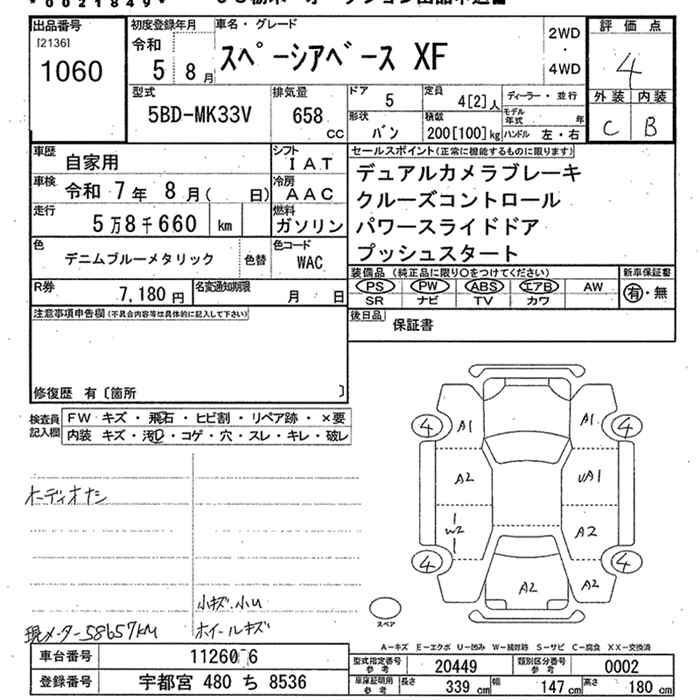 *0021849*
出品番号
[2136]
1060
初度登録年月
令和
5年 8月
車名・グレード
スペーシアベース XF
2WD
・
4WD
評価点
4
外装 内装
C B
型式
5BD-MK33V
排気量
658
cc
ドア
5
定員
4[2]人
ディーラー・並行
形状
バン
積載
200[100]kg
モデル年式 年
ハンドル 左・右
車歴
自家用
シフト
IAT
車検
令和 7年 8月( 日)
冷房
AAC
走行
5万8千660 km
燃料
ガソリン
色
デニムブルーメタリック
色替
色コード
WAC
R券
7,180円
名変通知期限
月 日
セールスポイント(正常に機能するものに限ります)
デュアルカメラブレーキ
クルーズコントロール
パワースライドドア
プッシュスタート
装備品 (純正品に限り○をつけてください)
新車保証書
PS PW ABS エアB AW
SR ナビ TV カワ
有・無
後日品
保証書
注意事項申告欄(不具合内容等は具体的に記入して下さい)
修復歴 有〔箇所 〕
検査員
記入欄
FW キズ・飛石・ヒビ割・リペア跡・×要
内装 キズ・汚れ・コゲ・穴・スレ・キレ・破レ
オーディオナシ
小キズ.小U
ホイールキズ
現メーター58657KM
4 A1 A1 4
A2 UA1
W2 A2
4 A2 A2 4
スペア
A-キズ E-エクボ U-凹み W-補修跡 S-サビ C-腐食 XX-交換済
車台番号
112606
登録番号
宇都宮 480 ち 8536
型式指定番号
参考
20449
類別区分番号
参考
0002
車庫証明用
参考
長さ
339cm
幅
147cm
高さ
180cm